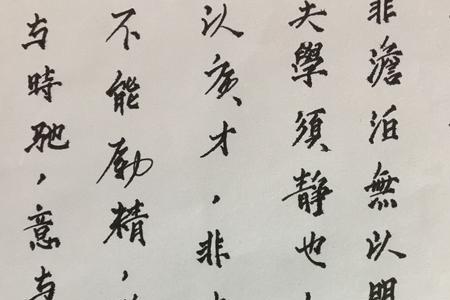 非澹泊無以明
夫學須静也
以廣才，非
不能勵精，
与時馳，意与